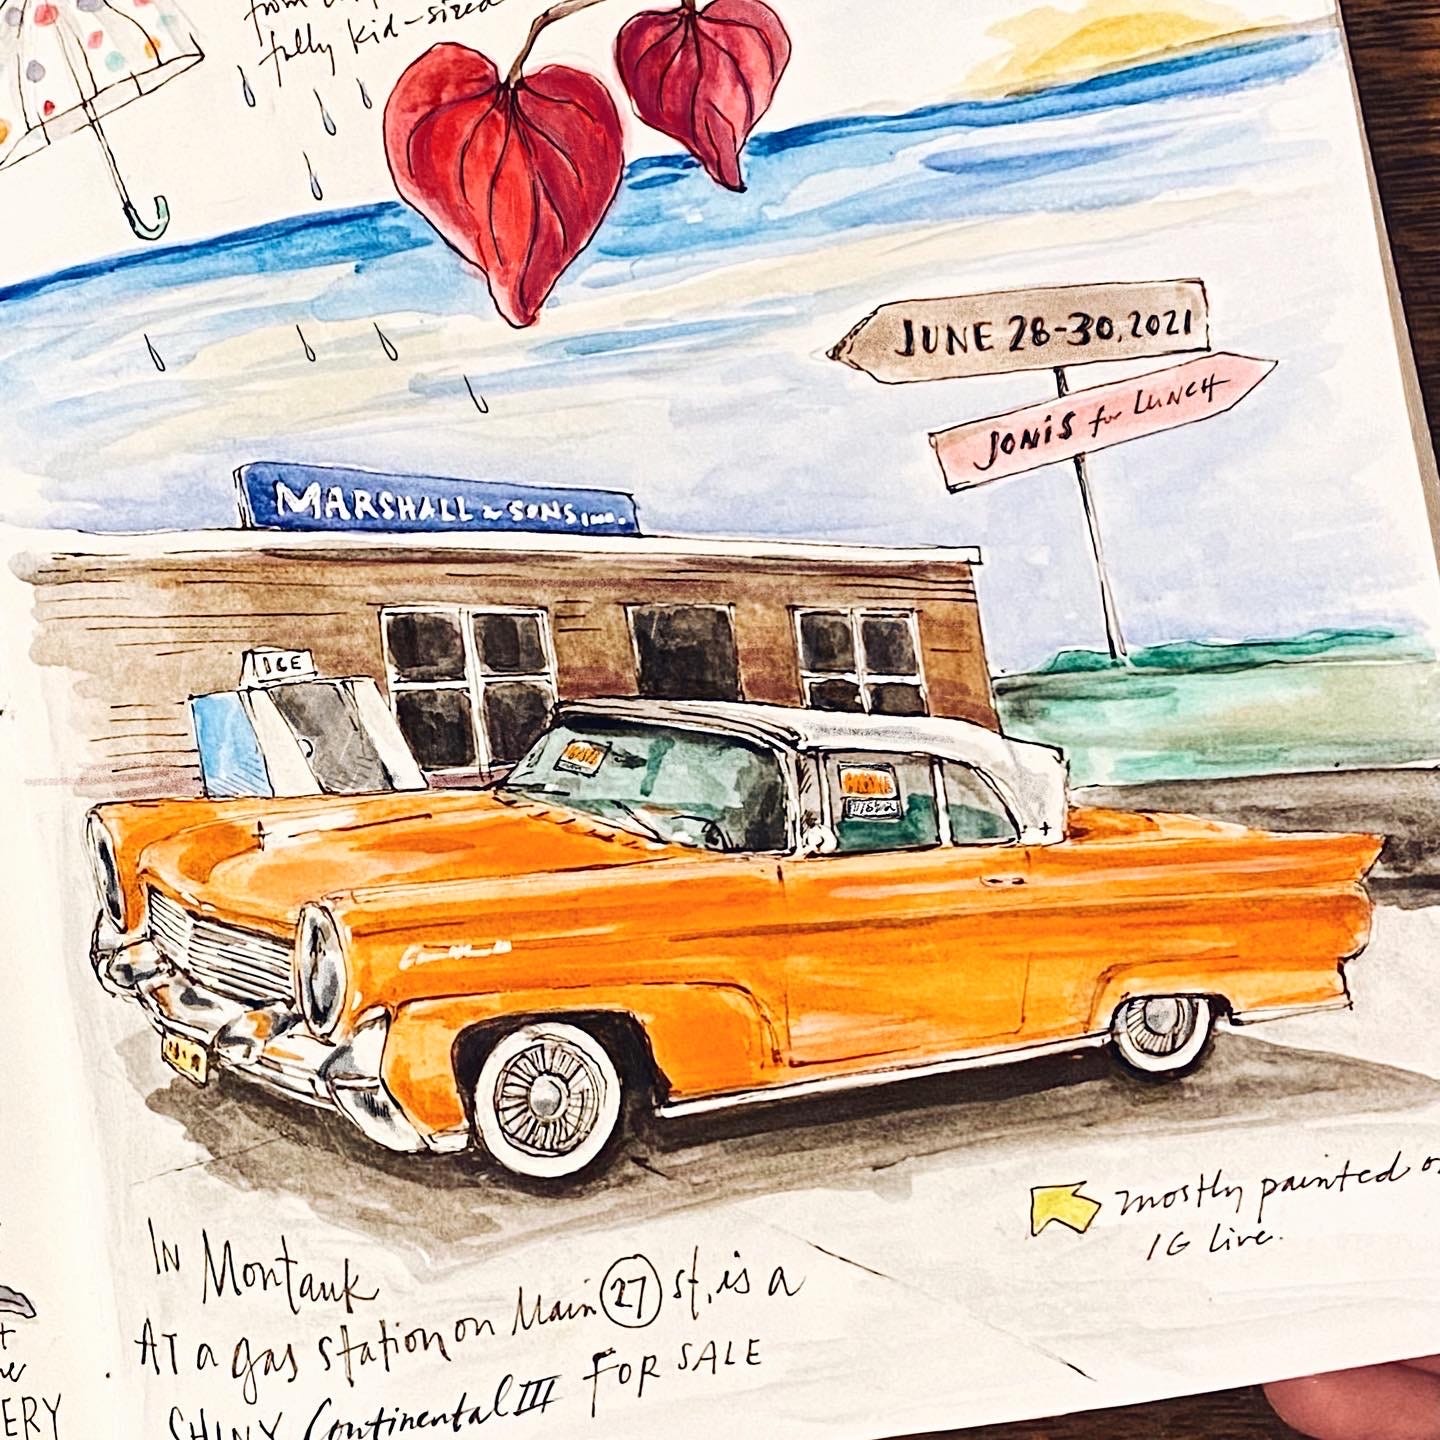 fully kid-sized
JUNE 28-30, 2021
JONIS for LUNCH
MARSHALL & SONS, INC.
ICE
mostly painted
IG live.
IN Montauk
AT a gas station on Main 27 st, is a
SHINY Continental III FOR SALE
ERY